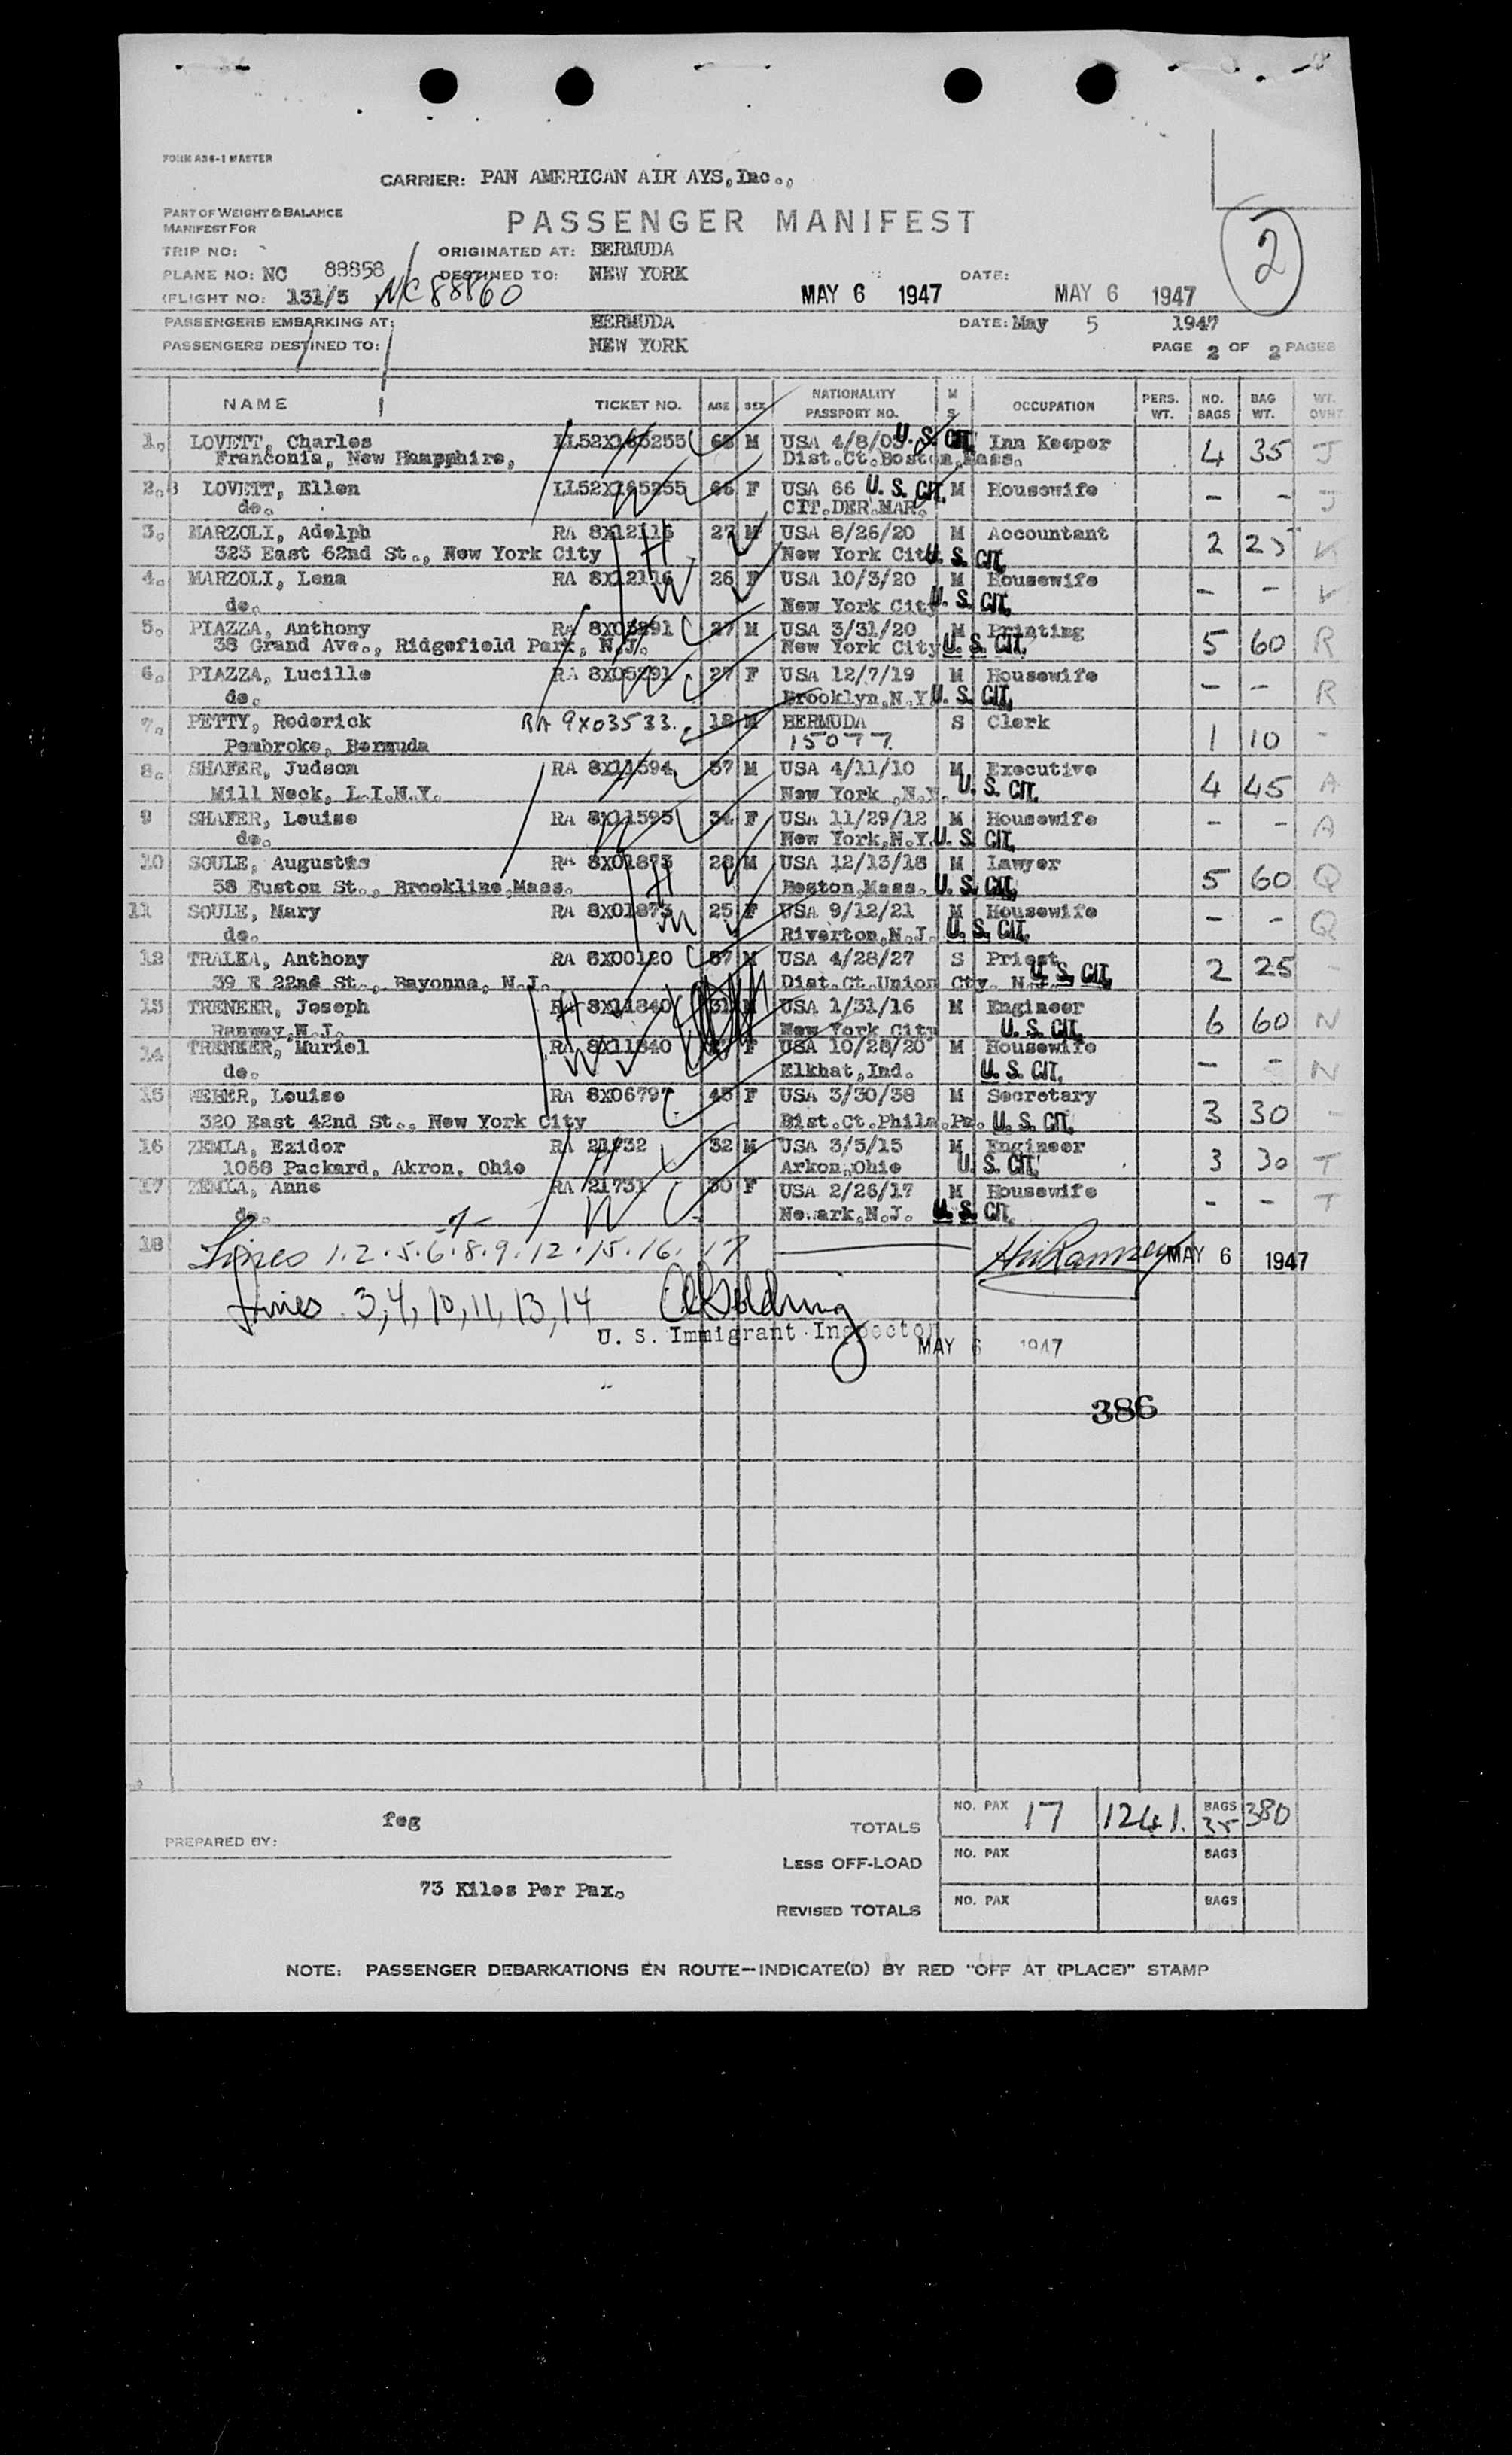 FORM AS6-1 MASTER
CARRIER: PAN AMERICAN AIR AYS, Inc.,
PART OF WEIGHT & BALANCE
MANIFEST FOR
PASSENGER MANIFEST
2
TRIP NO:
ORIGINATED AT: BERMUDA
PLANE NO: NC 88858
DESTINED TO: NEW YORK
DATE:
FLIGHT NO: 131/5 NC 88860
MAY 6 1947
MAY 6 1947
PASSENGERS EMBARKING AT: BERMUDA DATE: May 5 1947
PASSENGERS DESTINED TO: NEW YORK PAGE 2 OF 2 PAGES
NAME TICKET NO. AGE SEX NATIONALITY PASSPORT NO. M S OCCUPATION PERS. WT. NO. BAGS BAG WT. WT. OVHT
1. LOVETT, Charles LL52X165255 68 M USA 4/8/05 U. S. CIT. Inn Keeper 4 35 J
Franconia, New Hampphire, Dist.Ct.Boston,Mass.
2. LOVETT, Ellen LL52X165255 66 F USA 66 U. S. CIT. M Housewife - - J
do. CIT.DER.MAR.
3. MARZOLI, Adelph RA 8X12116 27 M USA 8/26/20 M Accountant 2 25 K
323 East 62nd St., New York City New York City U. S. CIT.
4. MARZOLI, Lena RA 8X12116 26 F USA 10/3/20 M Housewife - - K
do. New York City U. S. CIT.
5. PIAZZA, Anthony RA 8X05291 27 M USA 3/31/20 M Printing 5 60 R
38 Grand Ave., Ridgefield Park, N.J. New York City U. S. CIT.
6. PIAZZA, Lucille RA 8X05291 27 F USA 12/7/19 M Housewife - - R
do. Brooklyn,N.Y. U. S. CIT.
7. PETTY, Roderick RA 9X03533. 18 M BERMUDA S Clerk 1 10 -
Pembroke, Bermuda 15077
8. SHAFER, Judson RA 8X11594 37 M USA 4/11/10 M Executive 4 45 A
Mill Neck, L.I.N.Y. New York ,N.Y. U. S. CIT.
9 SHAFER, Louise RA 8X11595 34 F USA 11/29/12 M Housewife - - A
do. New York,N.Y. U. S. CIT.
10 SOULE, Augustus RA 8X01873 28 M USA 12/13/18 M Lawyer 5 60 Q
58 Euston St., Brookline,Mass. Boston,Mass. U. S. CIT.
11 SOULE, Mary RA 8X01873 25 F USA 9/12/21 M Housewife - - Q
do. Riverton,N.J. U. S. CIT.
12 TRALKA, Anthony RA 8X00120 57 M USA 4/28/27 S Priest 2 25 -
39 E 22nd St., Bayonne, N.J. Dist.Ct.Union Cty. N.J. U. S. CIT.
13 TRENEER, Joseph RA 8X11840 31 M USA 1/31/16 M Engineer 6 60 N
Ranway,N.J. New York City U. S. CIT.
14 TRENEER, Muriel RA 8X11840 F USA 10/28/20 M Housewife - - N
do. Elkhat,Ind. U. S. CIT.
15 WEBER, Louise RA 8X06797 45 F USA 3/30/38 M Secretary 3 30 -
320 East 42nd St., New York City Dist.Ct.Phila.Pa. U. S. CIT.
16 ZEMLA, Ezidor RA 21732 32 M USA 3/5/15 M Engineer 3 30 T
1068 Packard, Akron, Ohio Arkon,Ohio U. S. CIT.
17 ZEMLA, Anne RA 21731 30 F USA 2/26/17 M Housewife - - T
do. Newark,N.J. U. S. CIT.
18 Lines 1.2.5.6.8.9.12.15.16. 17 MAY 6 1947
-7-
Lines 3,4,10,11,13,14
U. S. Immigrant Inspector
MAY 6 1947
386
feg
PREPARED BY:
73 Kilos Per Pax.
TOTALS NO. PAX 17 1241. BAGS 35 380
LESS OFF-LOAD NO. PAX BAGS
REVISED TOTALS NO. PAX BAGS
NOTE: PASSENGER DEBARKATIONS EN ROUTE—INDICATE(D) BY RED "OFF AT (PLACE)" STAMP